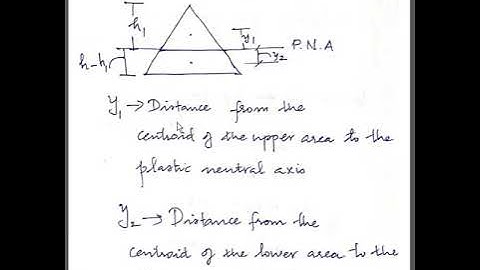 h₁
y₁
P.N.A
h-h₁
y₂
y₁ → Distance from the
centroid of the upper area to the
plastic neutral axis
y₂ → Distance from the
centroid of the lower area to the